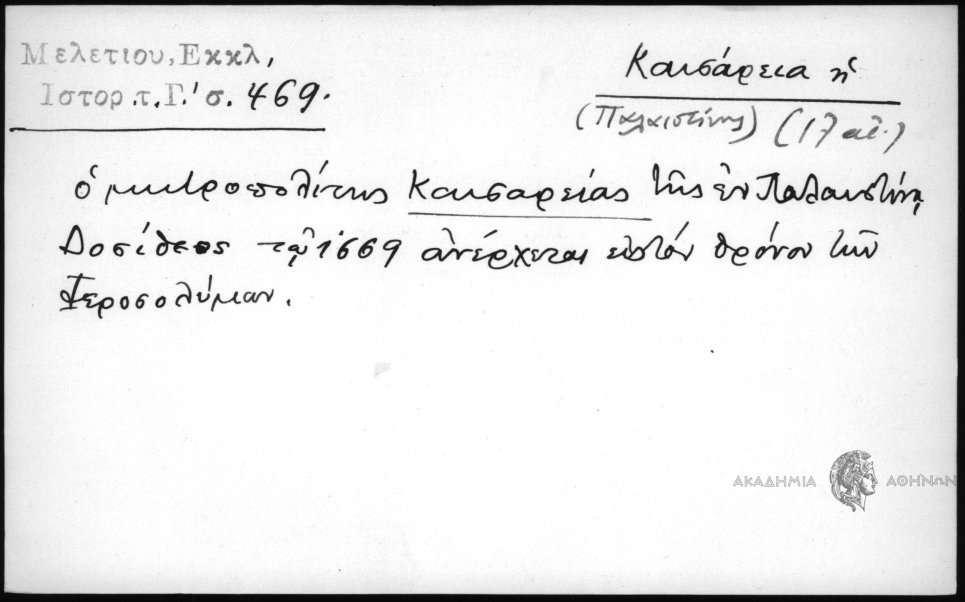 Μελετιου, Εκκλ,
Ιστορ.τ.Γ.' σ. 469.
Καισάρεια ἡ
(Παλαιστίνης) (17 αἰ.)
ὁ μητροπολίτης Καισαρείας τῆς ἐν Παλαιστίνῃ,
Δοσίθεος τῷ 1669 ἀνέρχεται εἰς τόν θρόνον τῶν
Ἱεροσολύμων.
ΑΚΑΔΗΜΙΑ ΑΘΗΝΩΝ